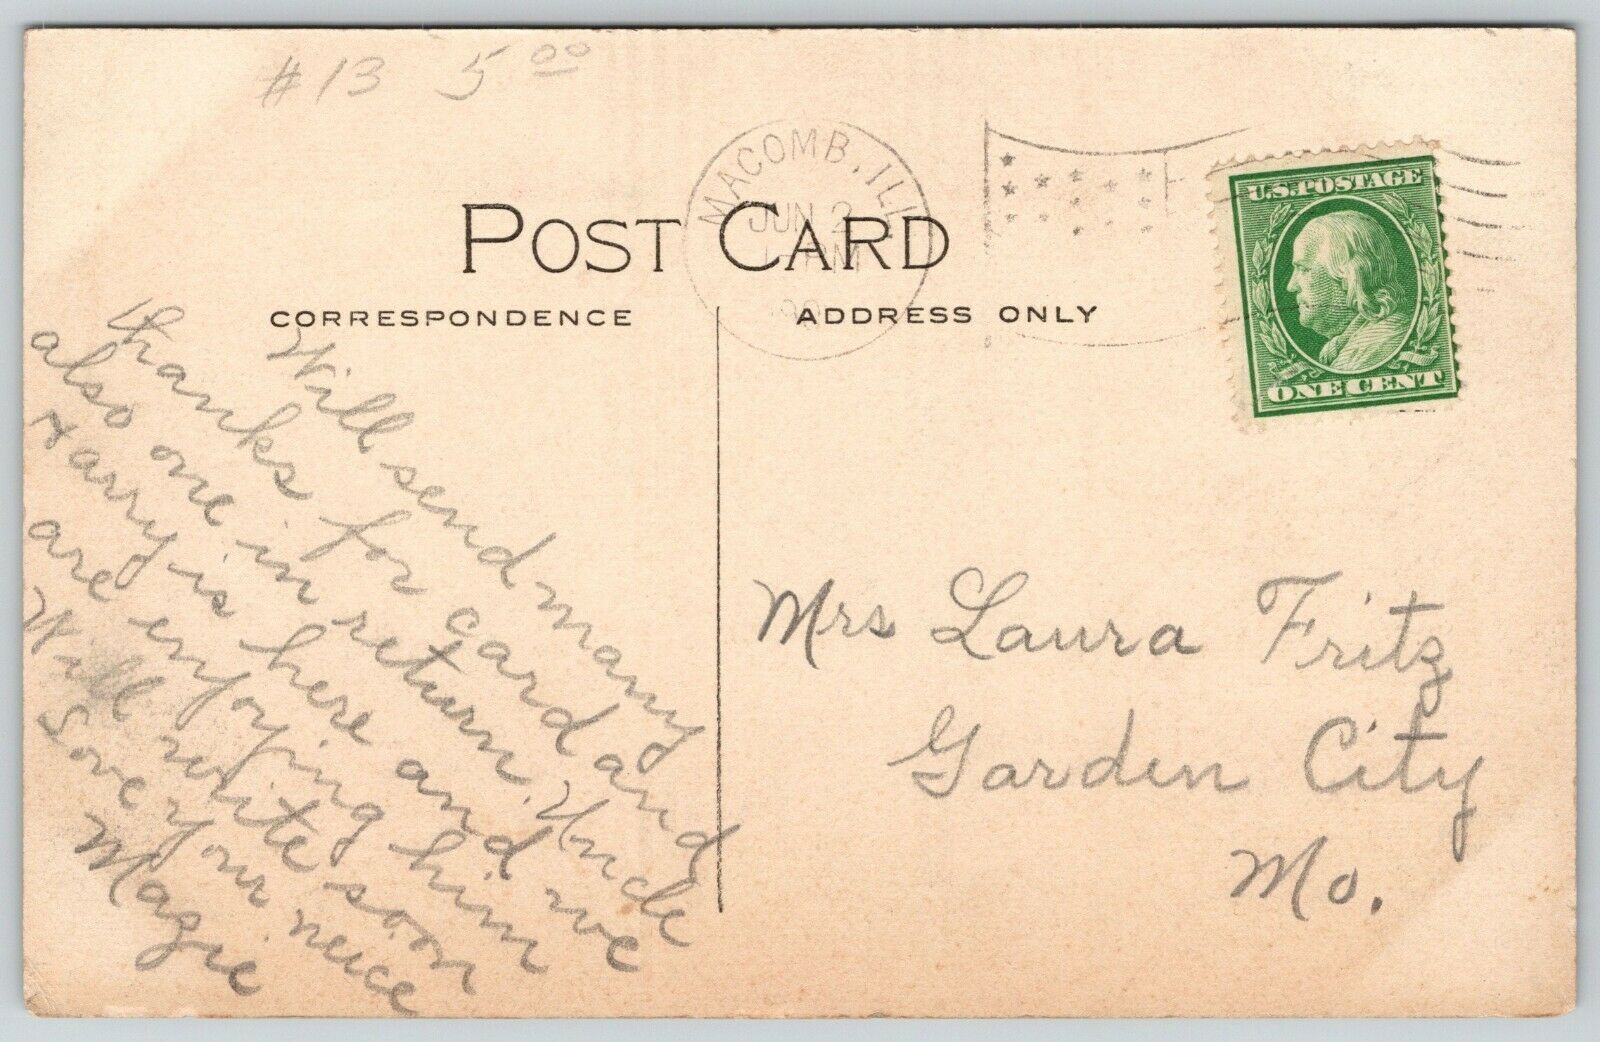 #13 5.00
MACOMB, ILL.
JUN 2
PM
U.S. POSTAGE
ONE CENT
POST CARD
CORRESPONDENCE
ADDRESS ONLY
Will send many
thanks for card and
also one in return. Uncle
Harry is here and we
are enjoying him
Will write soon
Love your neice
Magie
Mrs Laura Fritz
Garden City
Mo.